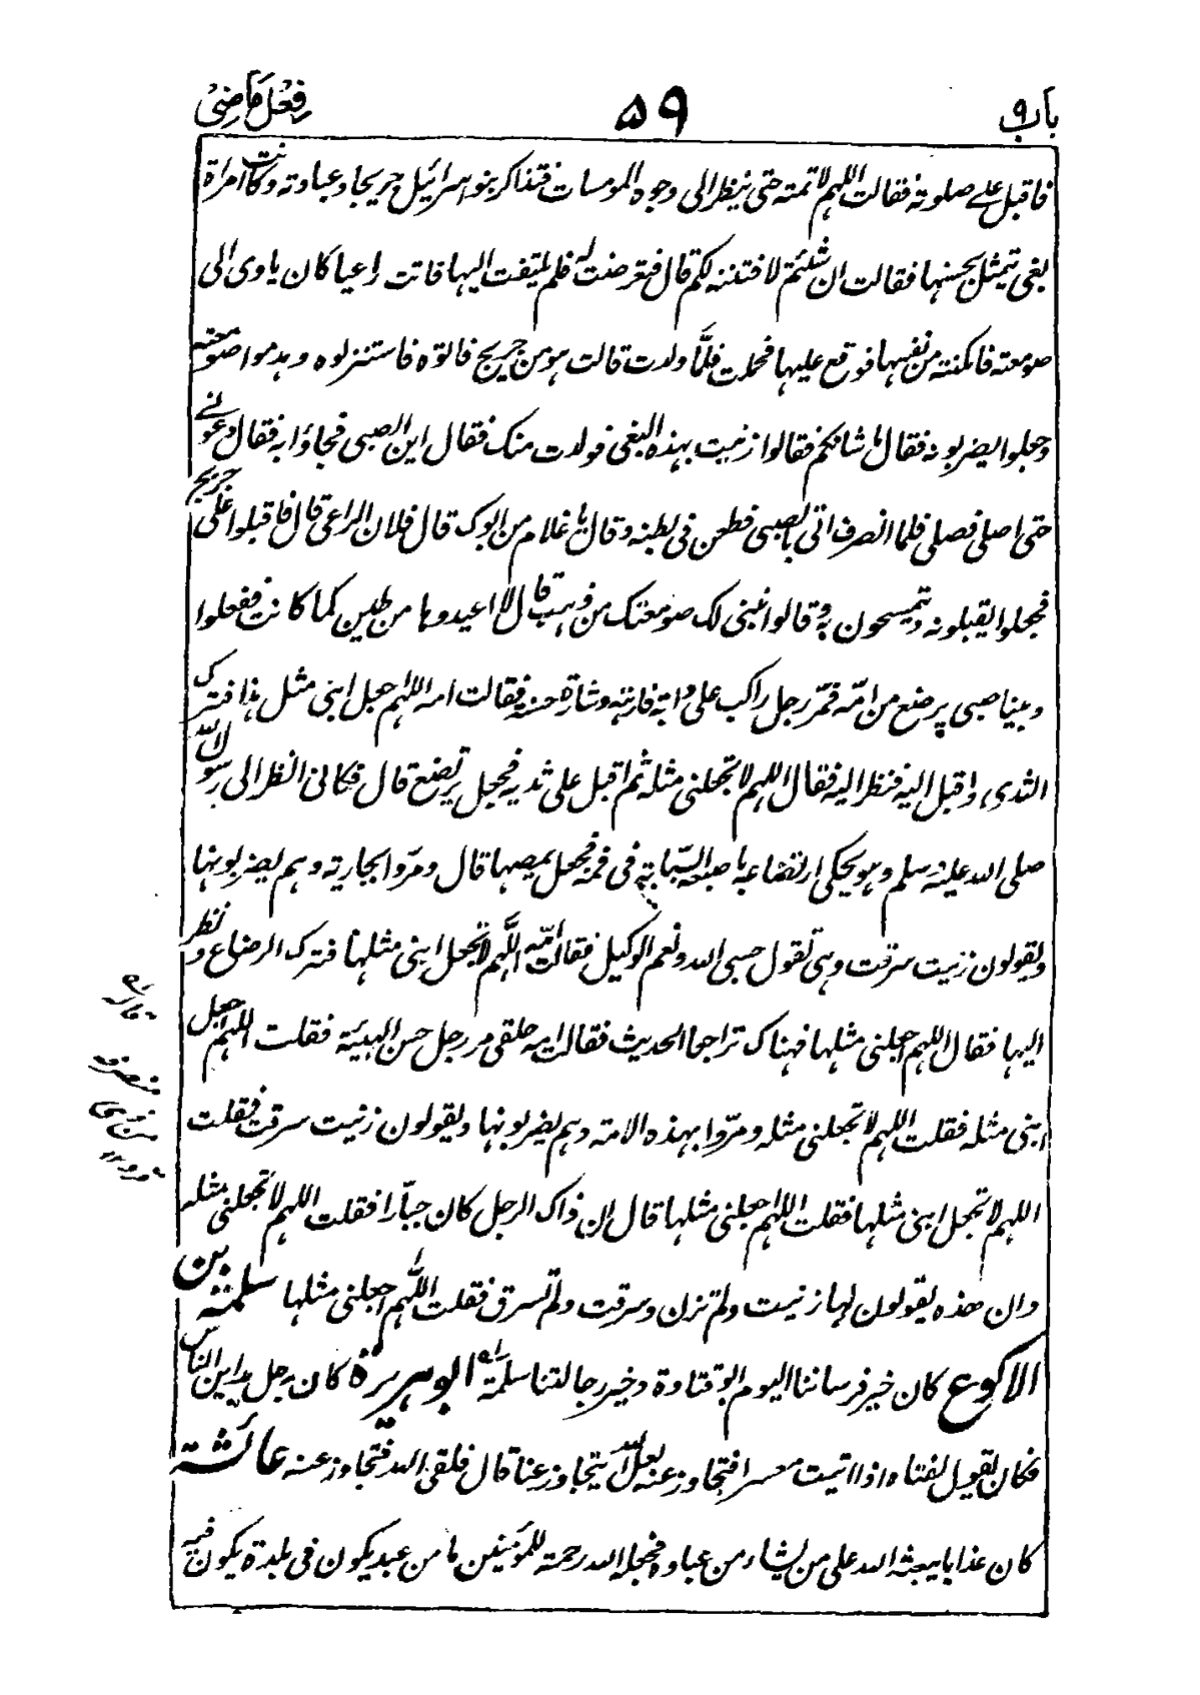 باب ٩ ٥٩ فِعْل مَاضِىْ
فاقبل على صلوته فقالت اللهم لا تمته حتى ينظر الى وجوه المومسات فتذاكر بنو اسرائيل جريجا وعبادته وكانت امراة
بغى يتمثل بحسنها فقالت ان شئتم لافتننه لكم قال فتعرضت له فلم يلتفت اليها فاتت راعيا كان ياوى الى
صومعته فامكنته من نفسها فوقع عليها فحملت فلمَّا ولدت قالت هو من جريج فاتوه فاستنزلوه وهدموا صومعته
وجعلوا يضربونه فقال ما شانكم فقالوا زنيت بهذه البغى فولدت منك فقال اين الصبى فجاؤا به فقال دعونى
حتى اصلى فصلى فلما انصرف اتى بالصبى فطعن فى بطنه وقال يا غلام من ابوك قال فلان الراعى قال فاقبلوا على جريج
فجعلوا يقبلونه ويتمسحون به وقالوا نبنى لك صومعتك من ذهب قال لا اعيدوها من طين كما كانت ففعلوا
وبينا صبى يرضع من امّه فمّر رجل راكب على دابة فارهة وشارة حسنة فقالت امه اللهم اجعل ابنى مثل هذا فترك
الثدى واقبل اليه فنظر اليه فقال اللهم لا تجعلنى مثله ثم اقبل على ثديه فجعل يرتضع قال فكانى انظر الى رسول الله
صلى الله عليه وسلم وهو يحكى ارتضاعه باصبعه السّبابة فى فمه فجعل يمصها قال ومرّوا بجارية وهم يضربونها
ويقولون زنيت سرقت وهى تقول حسبى الله ونعم الوكيل فقالت امّه اللّهم لا تجعل ابنى مثلها فترك الرضاع ونظر
اليها فقال اللهم اجعلنى مثلها فهناك تراجعا الحديث فقالت امه حلقى مر رجل حسن الهيئة فقلت اللهم اجعل
ابنى مثله فقلت اللهم لا تجعلنى مثله ومرّوا بهذه الامة وهم يضربونها ويقولون زنيت سرقت فقلت
اللهم لا تجعل ابنى مثلها فقلت اللهم اجعلنى مثلها قال ان ذاك الرجل كان جبّارا فقلت اللهم لا تجعلنى مثله
وان هذه يقولون لها زنيت ولم تزن وسرقت ولم تسرق فقلت اللّهم اجعلنى مثلها سلمة بن
الاكوع كان خير فرساننا اليوم ابو قتادة وخير رجالتنا سلمة ابو هريرة كان رجل يداين الناس
فكان يقول لفتاه اذا اتيت معسرا فتجاوز عنه لعل الله يتجاوز عنا قال فلقى الله فتجاوز عنه عائشة
كان عذابا يبعثه الله على من يشاء من عباده فجعله الله رحمة للمؤمنين ما من عبد يكون فى بلدة يكون فيه